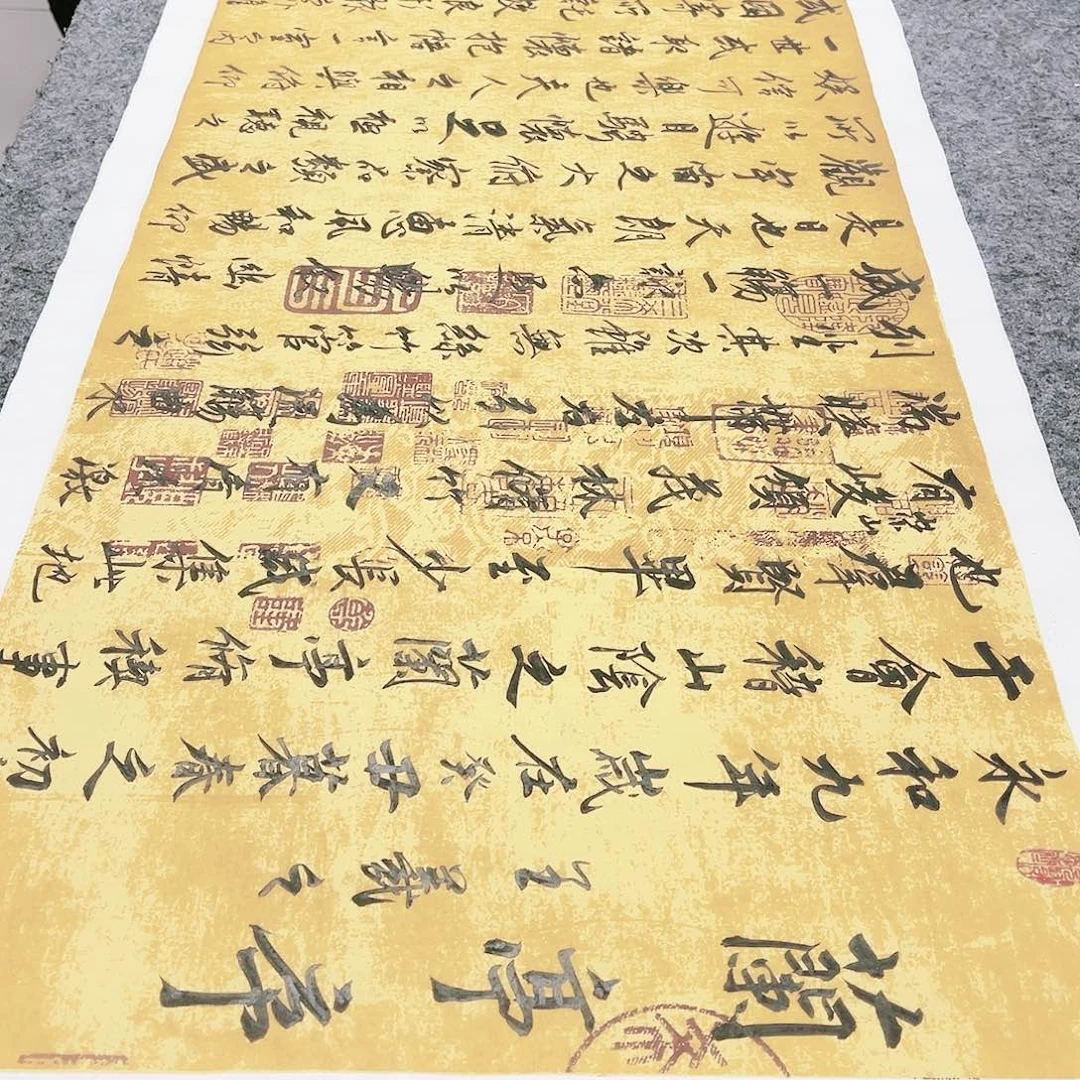 蘭亭序
王羲之
永和九年歲在癸丑暮春之初
于會稽山陰之蘭亭脩禊事
也群賢畢至少長咸集此地
有崇山峻領茂林脩竹又有清流激
湍暎帶左右引以為流觴曲水
列坐其次雖無絲竹管弦之
盛一觴一詠亦足以暢敘幽情
是日也天朗氣清惠風和暢仰
觀宇宙之大俯察品類之盛
所以遊目騁懷足以極視聽之
娛信可樂也夫人之相與俯仰
一世或取諸懷抱悟言一室之內
或因寄所託放浪形骸